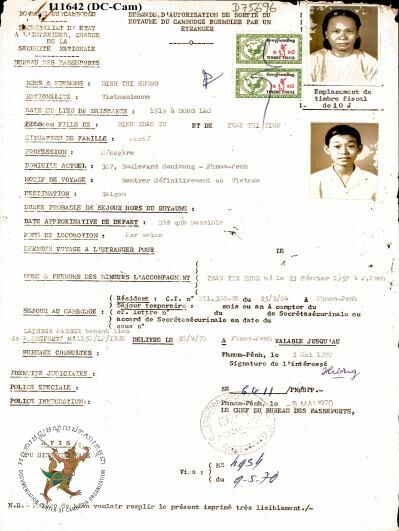 I11642 (DC-Cam)
D75696
ROYAUME DU CAMBODGE
SECRETARIAT D'ETAT
A L'INTERIEUR, CHARGE
DE LA
SECURITE NATIONALE
BUREAU DES PASSEPORTS
DEMANDE D'AUTORISATION DE SORTIE DU
ROYAUME DU CAMBODGE FORMULEE PAR UN
ETRANGER
Emplacement de
timbre fiscal
de 10 J
NOMS & PRENOMS : DINH THI HUONG
NATIONALITE : Vietnamienne
DATE ET LIEU DE NAISSANCE : 1919 à DONG LAC
FILS ou FILLE DE : DINH XUAN TU ET DE TRAN THI
SITUATION DE FAMILLE : marié
PROFESSION : Ménagère
DOMICILE ACTUEL : 307, Boulevard Monivong - Phnom-Penh
MOTIF DE VOYAGE : Rentrer définitivement au Vietnam
DESTINATION : Saigon
DUREE PROBABLE DE SEJOUR HORS DU ROYAUME :
DATE APPROXIMATIVE DE DEPART : Dès que possible
MODE DE LOCOMOTION : Par avion
DERNIER VOYAGE A L'ETRANGER POUR LE
NOMS & PRENOMS DES MINEURS L'ACCOMPAGNENT TRAN THE HUNG né le 23 Février 1957 à P.Penh
SEJOUR AU CAMBODGE :
Résident : C.I. n° du 25/2/64 à Phnom-Penh
Séjour temporaire : mois ou an à compter du
cf. lettre n° du de Secrétasécurinale ou
accord de Secrétasécurinale en date du
sous n°
LAISSER PASSER tenant lieu
de PASSEPORT N° DELIVRE LE 28/4/70 A Phnom-Penh VALABLE JUSQU'AU
BUREAUX CONSULTES : Phnom-Pênh, le 2 Mai 1970
Signature de l'intéressé
Huong
IDENTITE JUDICIAIRE :
POLICE SPECIALE :
POLICE IMMIGRATION :
N° 6411 /PN/BPP.-
Phnom-Pênh, le -9 MAI 1970
LE CHEF DU BUREAU DES PASSEPORTS,
AVIS
Visa : N°
du 9.5.70
DOCUMENTATION CENTER OF CAMBODIA ORGANIZATION
N.B.- Prière de bien vouloir remplir le présent imprimé très lisiblement./-